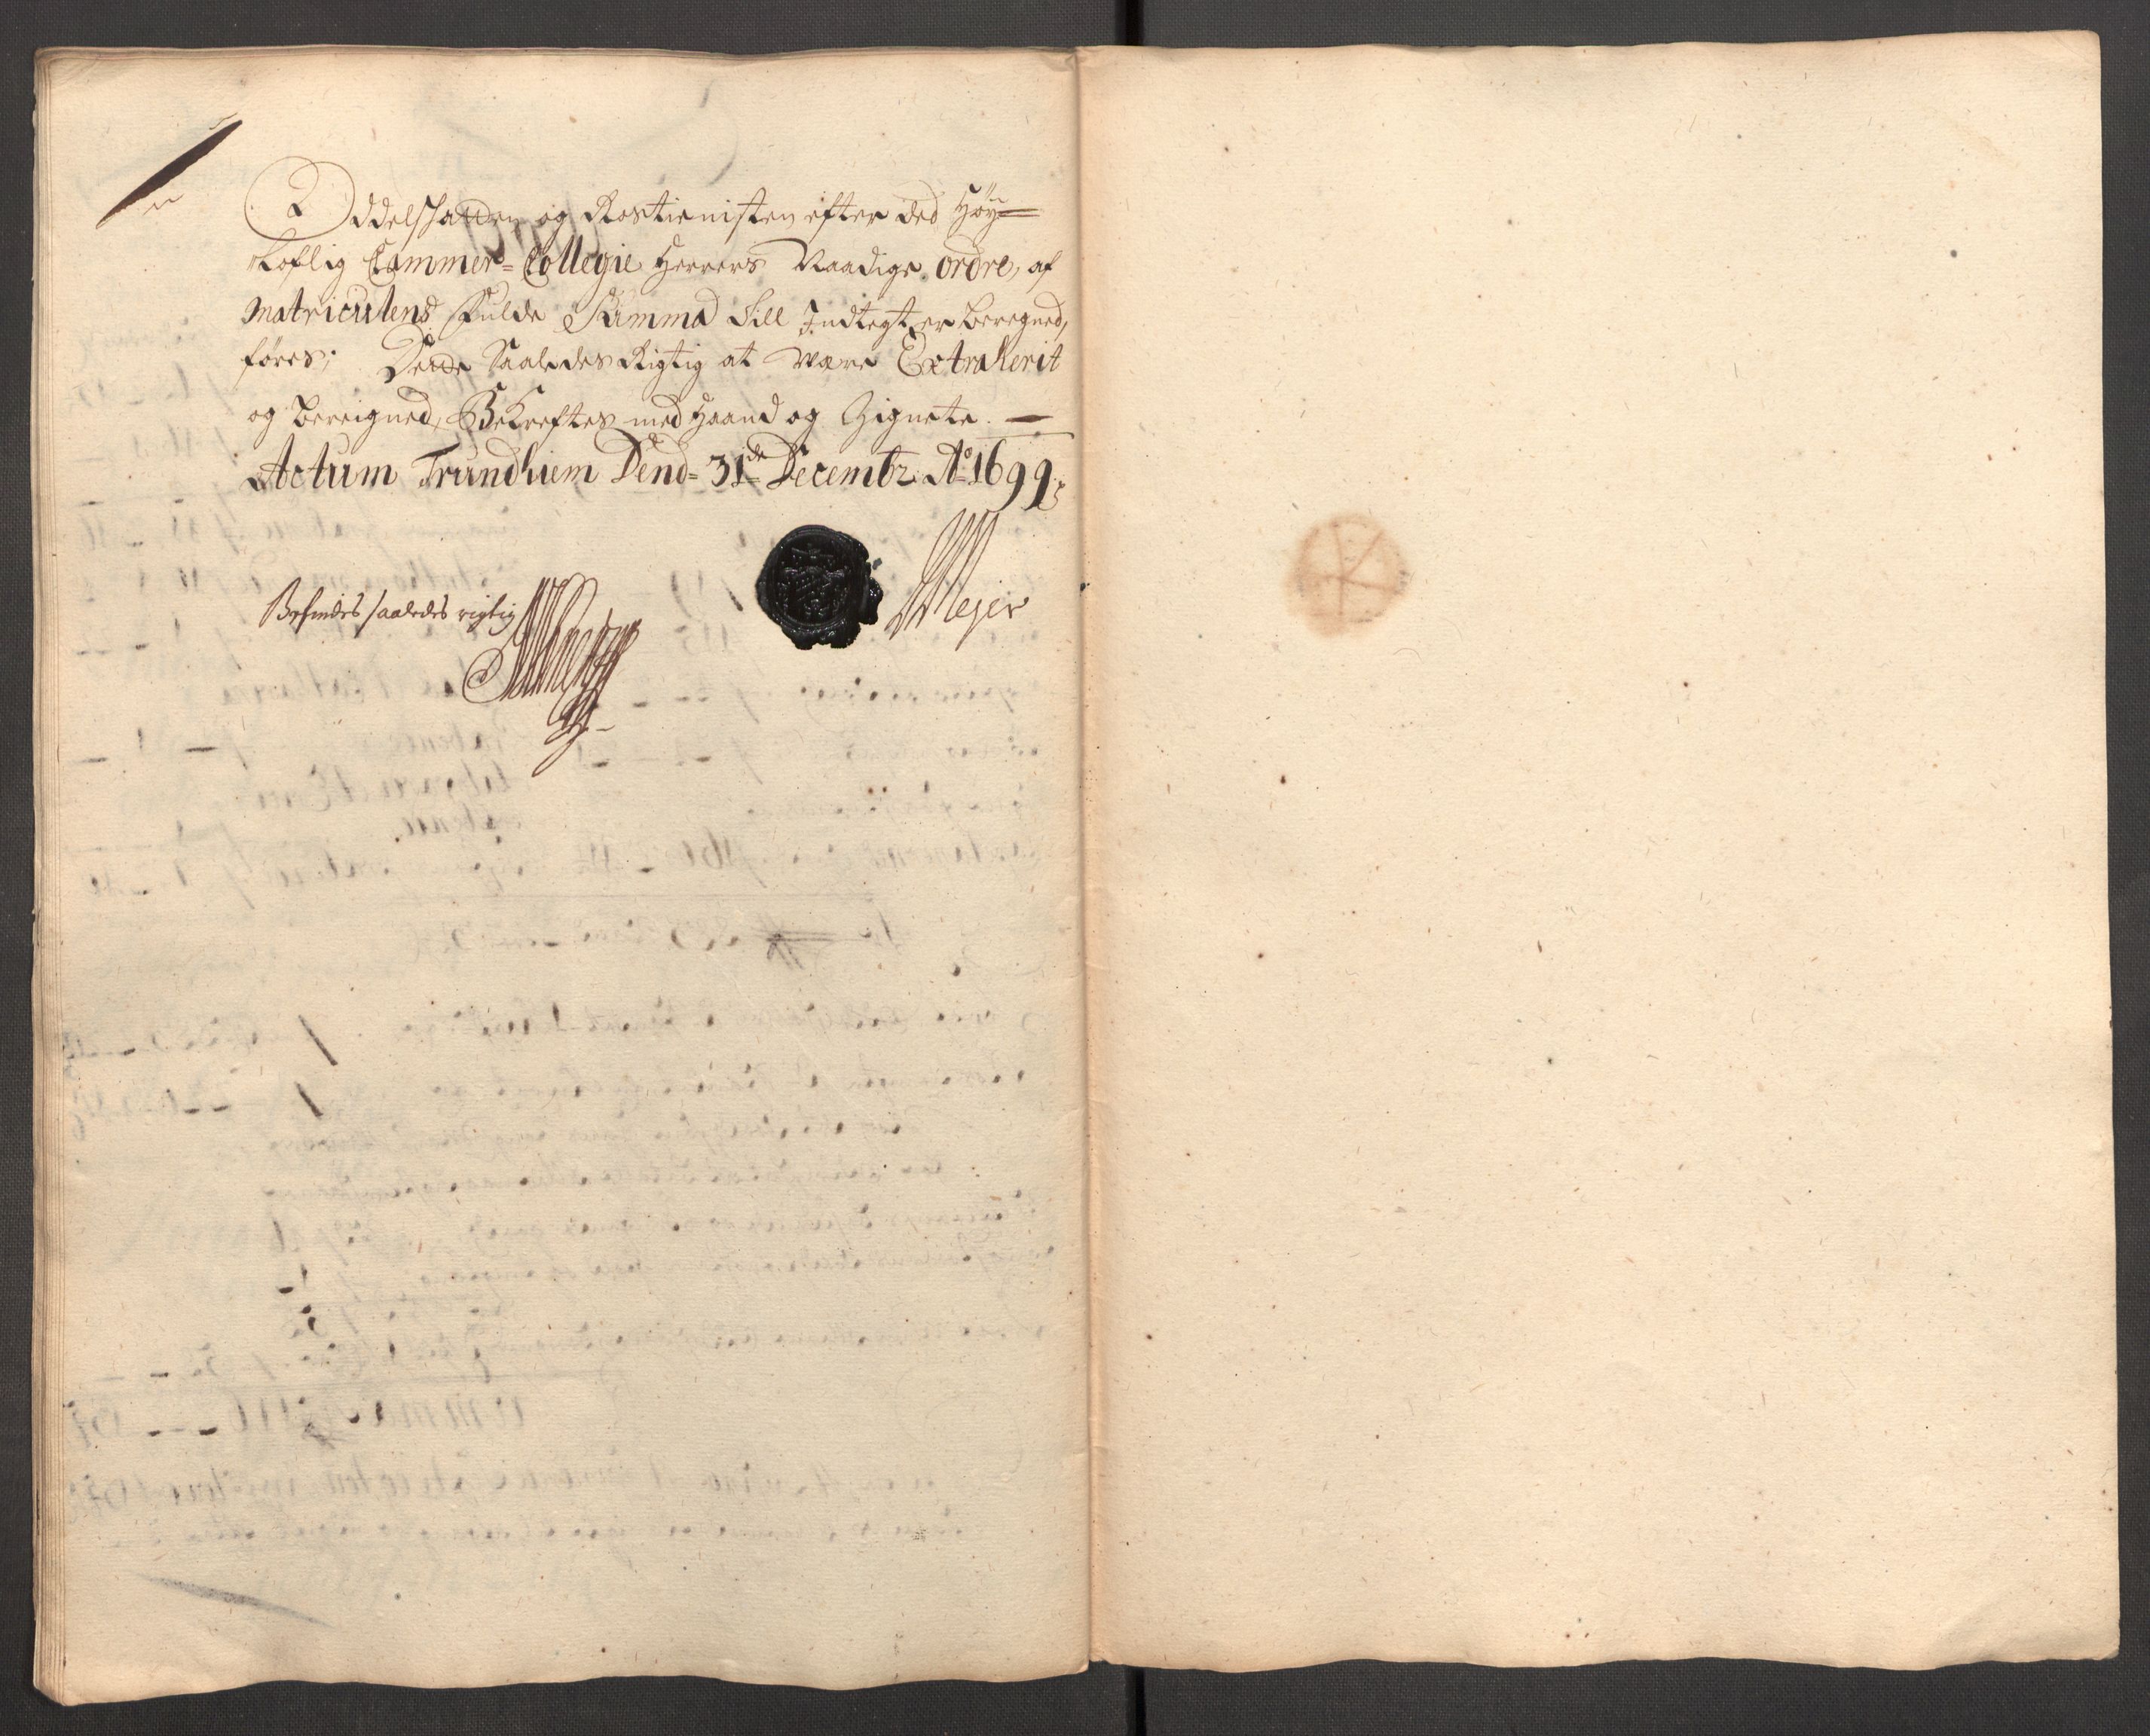 Oddelskatten og Rostienisten efter det Höy-
Loflig Cammer-Collegie Herrers Naadige ordre, af
Matriculens fulde Summa Till Indtegt er beregned,
föres; Dette Saaledes Rigtig at være Extraherit
og bereigned, Bekreftes med Haand og Zignete.
Actum Trundhiem Dend 31de Decembr Ao 1699
Befindes saaledes rigtig